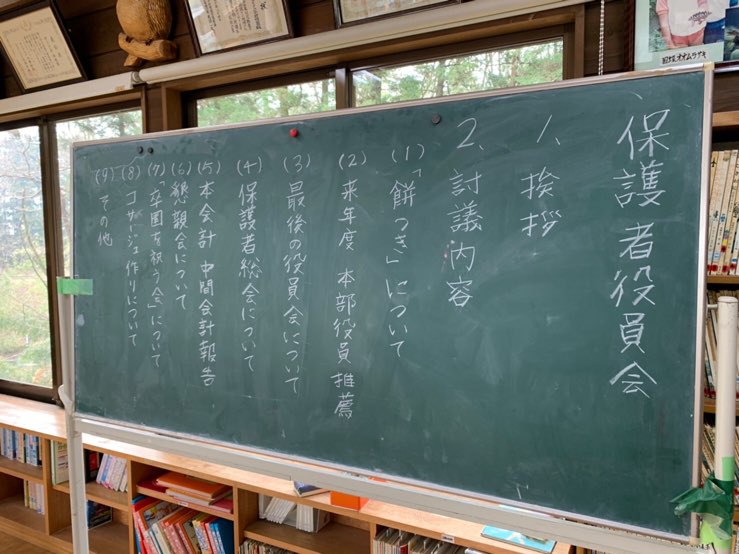 保護者役員会
1、挨拶
2、討議内容
(1)「餅つき」について
(2) 来年度 本部役員 推薦
(3) 最後の役員会について
(4) 保護者総会について
(5) 本会計 中間会計報告
(6) 懇親会について
(7)「卒園を祝う会」について
(8) コサージュ作りについて
(9) その他